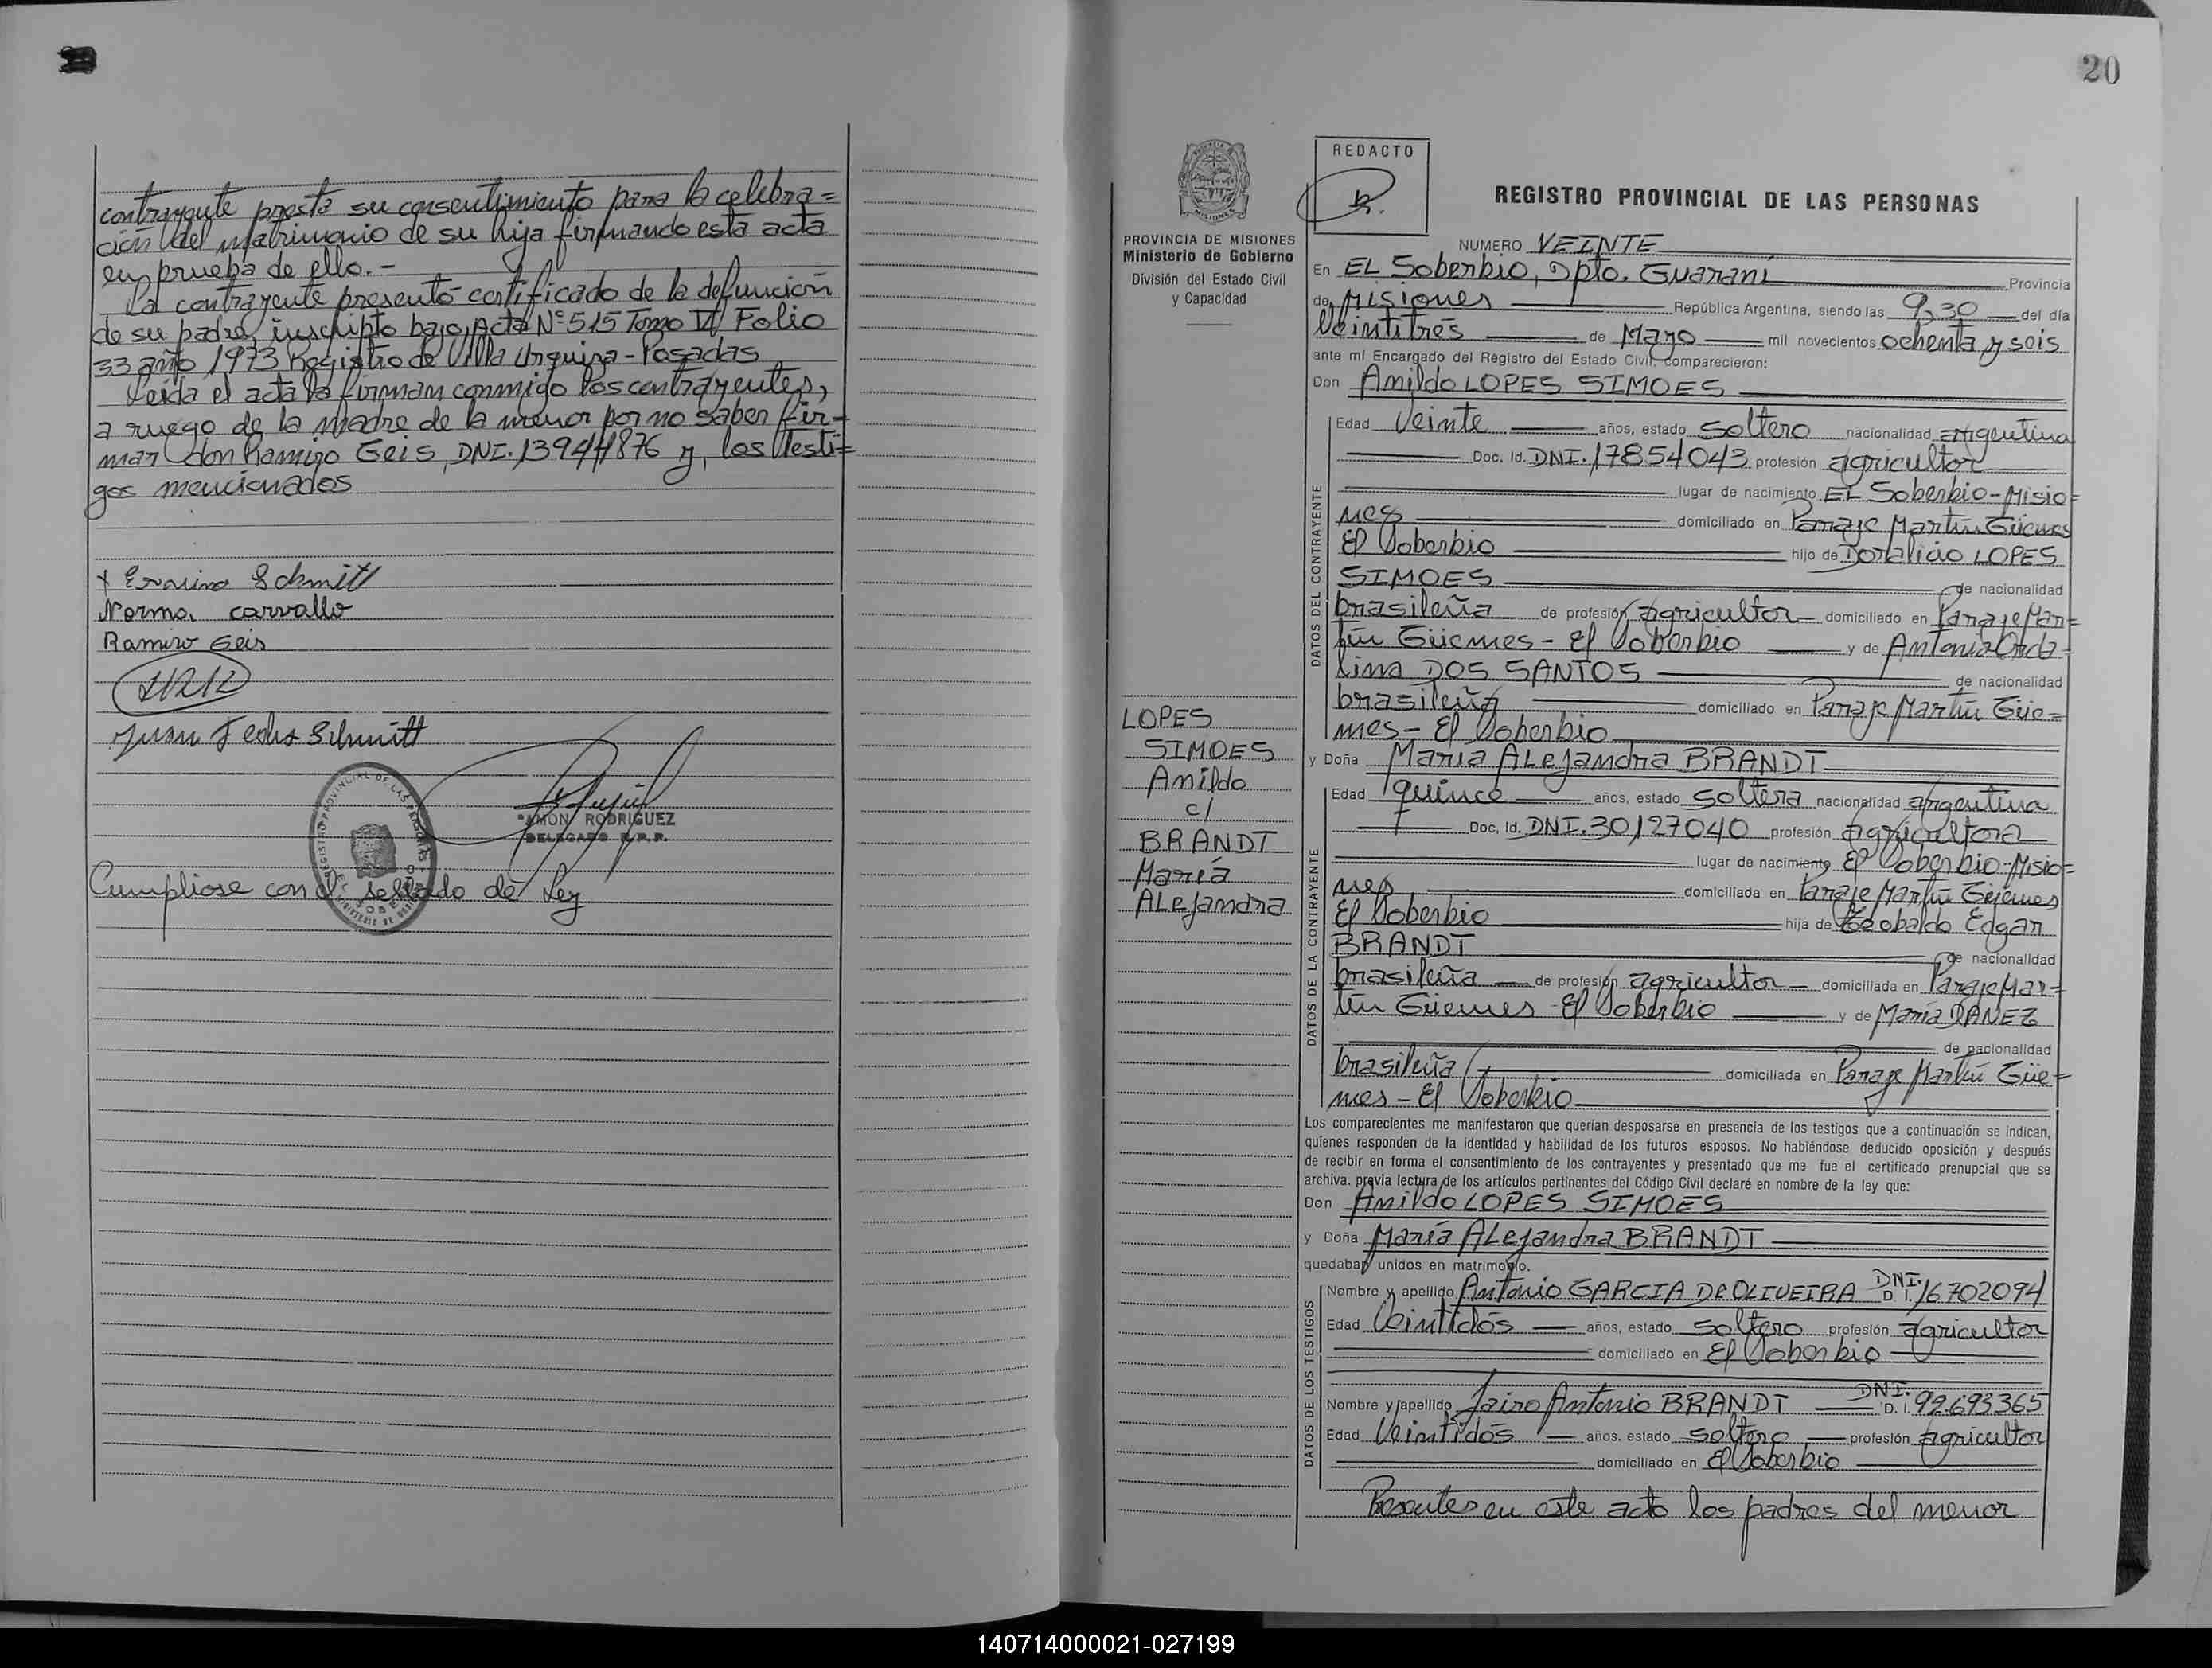 contrayente presta su consentimiento para la celebra=
ción del matrimonio de su hija firmando esta acta
en prueba de ello.-
La contrayente presentó certificado de la defunción
de su padre, inscripto bajo Acta Nº 515 Tomo VI Folio
33 año 1973 Registro de Villa Urquiza - Posadas
Leída el acta la firman conmigo los contrayentes,
a ruego de la madre de la menor por no saber fir=
mar don Ramiro Geis, DNI. 13944876 y, los Testi=
gos mencionados
Schmitt
Norma carvallo
Ramiro Geis
Juan Schmitt
RAMON RODRIGUEZ
DELEGADO R.P.P.
Cumpliose con el sellado de Ley
20
PROVINCIA DE MISIONES
Ministerio de Gobierno
División del Estado Civil
y Capacidad
LOPES
SIMOES
Anildo
c/
BRANDT
María
ALejandra
REDACTO
REGISTRO PROVINCIAL DE LAS PERSONAS
NUMERO VEINTE
En EL Soberbio, Dpto. Guaraní Provincia
de Misiones República Argentina, siendo las 9,30 del día
Veintitrés de Mayo mil novecientos ochenta y seis
ante mí Encargado del Registro del Estado Civil, comparecieron:
Don Anildo LOPES SIMOES
DATOS DEL CONTRAYENTE
Edad Veinte años, estado soltero nacionalidad argentina
Doc. Id. DNI. 17854043 profesión agricultor
lugar de nacimiento EL Soberbio - Misio=
nes domiciliado en Paraje Martín Güemes
El Soberbio hijo de Doralicio LOPES
SIMOES de nacionalidad
brasileña de profesión agricultor domiciliado en Paraje Mar=
tín Güemes - El Soberbio y de Antonia Onda=
lina DOS SANTOS de nacionalidad
brasileña domiciliado en Paraje Martín Güe=
mes - El Soberbio
y Doña María ALejandra BRANDT
DATOS DE LA CONTRAYENTE
Edad quince años, estado soltera nacionalidad argentina
Doc. Id. DNI. 30127040 profesión agricultora
lugar de nacimiento El Soberbio - Misio=
nes domiciliada en Paraje Martín Güemes
El Soberbio hija de Teobaldo Edgar
BRANDT de nacionalidad
brasileña de profesión agricultor domiciliada en Paraje Mar=
tín Güemes - El Soberbio y de María DANEZ
de nacionalidad
brasileña domiciliada en Paraje Martín Güe=
mes - El Soberbio
Los comparecientes me manifestaron que querían desposarse en presencia de los testigos que a continuación se indican,
quienes responden de la identidad y habilidad de los futuros esposos. No habiéndose deducido oposición y después
de recibir en forma el consentimiento de los contrayentes y presentado que me fue el certificado prenupcial que se
archiva, previa lectura de los artículos pertinentes del Código Civil declaré en nombre de la ley que:
Don Anildo LOPES SIMOES
y Doña María ALejandra BRANDT
quedaban unidos en matrimonio.
DATOS DE LOS TESTIGOS
Nombre y apellido Antonio GARCIA De OLIVEIRA DNI. D. I. 16702094
Edad Veintidós años, estado soltero profesión agricultor
domiciliado en El Soberbio
Nombre y apellido Jairo Antonio BRANDT DNI. D. I. 92.693.365
Edad Veintidós años, estado soltero profesión agricultor
domiciliado en El Soberbio
Presentes en este acto los padres del menor
140714000021-027199